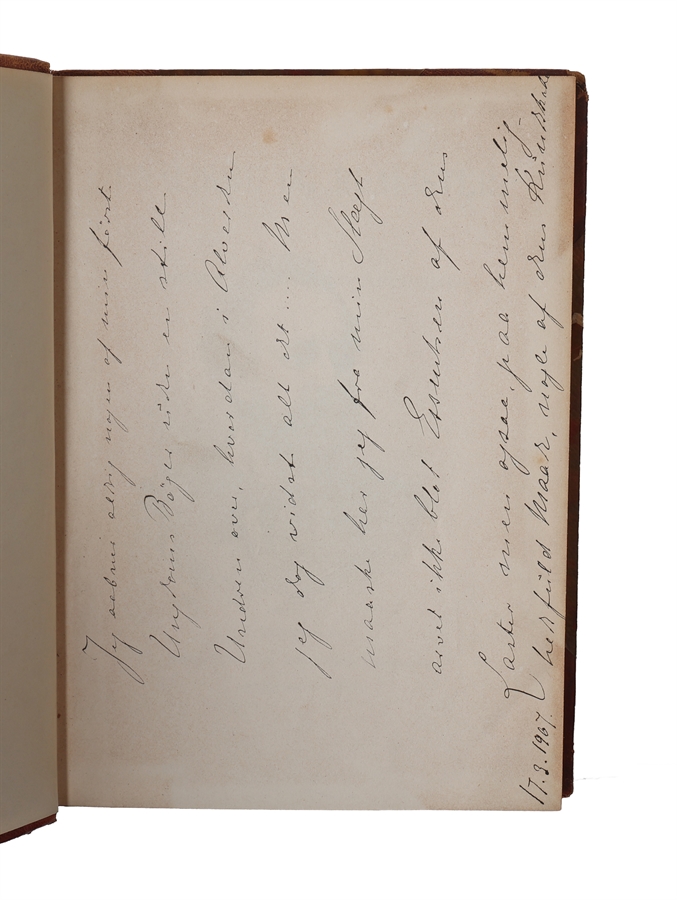 Jeg aabner aldrig nogen af min først
Ungdoms Bøger uden en stille
Undren over, hvordan i Alverden
jeg dog vidst alt det.... Men
maaske har jeg fra min Slægt
arvet ikke blot Essentsen af dens
Laster men ogsaa, paa hemmelig-
hedsfuld Maade, nogle af dens Kundskab
17.3.1967.